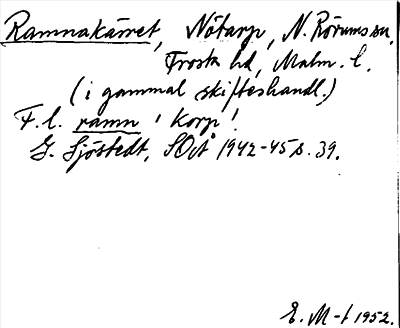 Ramnakärret, Nötarp, N. Rörums sn,
Frosta hd, Malm. l.
(i gammal skifteshandl.)
F. l. ramn 'korp'.
G. Sjöstedt, SOÅ 1942-45 s. 39.
E. M-t 1952.